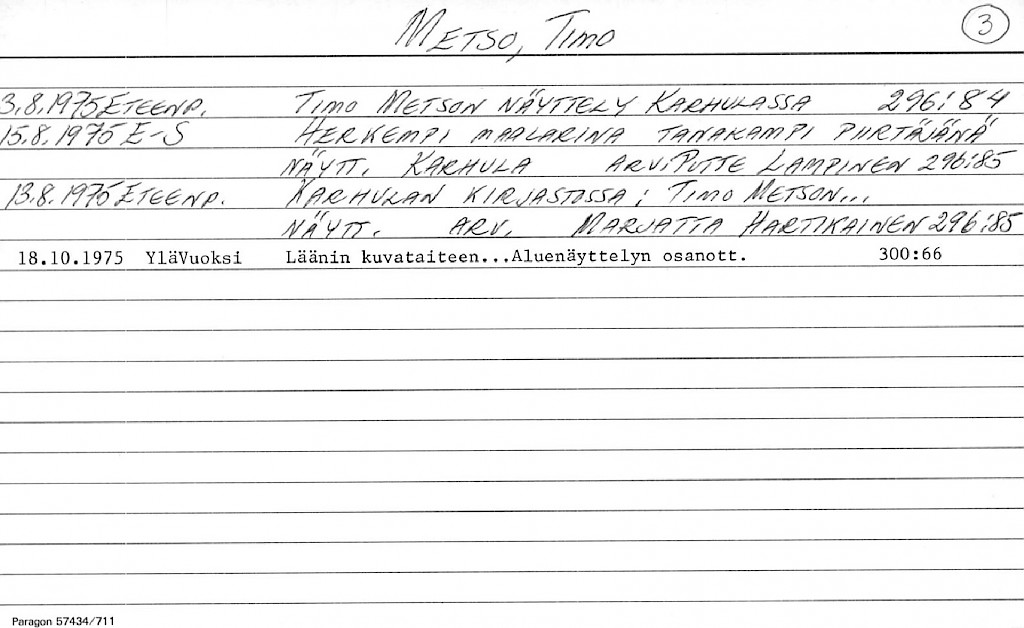 METSO, TIMO 3
3.8.1975 ETEENP. TIMO METSON NÄYTTELY KARHULASSA 296:84
15.8.1975 E-S HERKEMPI MAALARINA TANAKAMPI PIIRTÄJÄNÄ
NÄYTT. KARHULA ARV. PUTTE LAMPINEN 296:85
13.8.1975 ETEENP. KARHULAN KIRJASTOSSA; TIMO METSON...
NÄYTT. ARV. MARJATTA HARTIKAINEN 296:85
18.10.1975 YläVuoksi Läänin kuvataiteen...Aluenäyttelyn osanott. 300:66
Paragon 57434/711